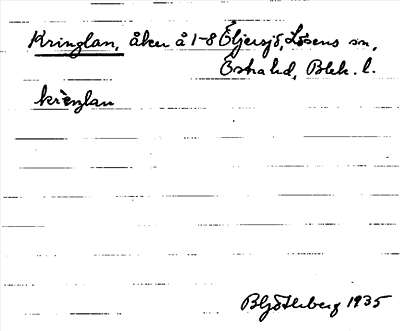 Kringlan, åker å 1-8 Öljersjö, Lösens sn,
Östra hd, Blek. l.
krìenlan
B Götlberg 1935